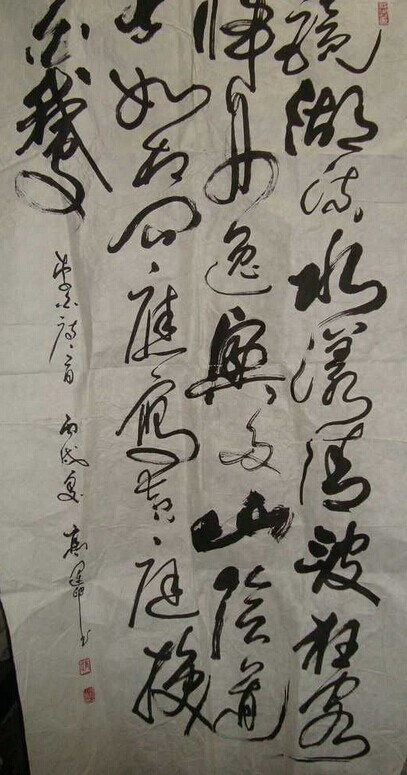 鏡湖流水漾清波狂客
歸舟逸興多山陰道
士如相見應寫黃庭換
白鵝
李白詩一首 丙戌夏 高書